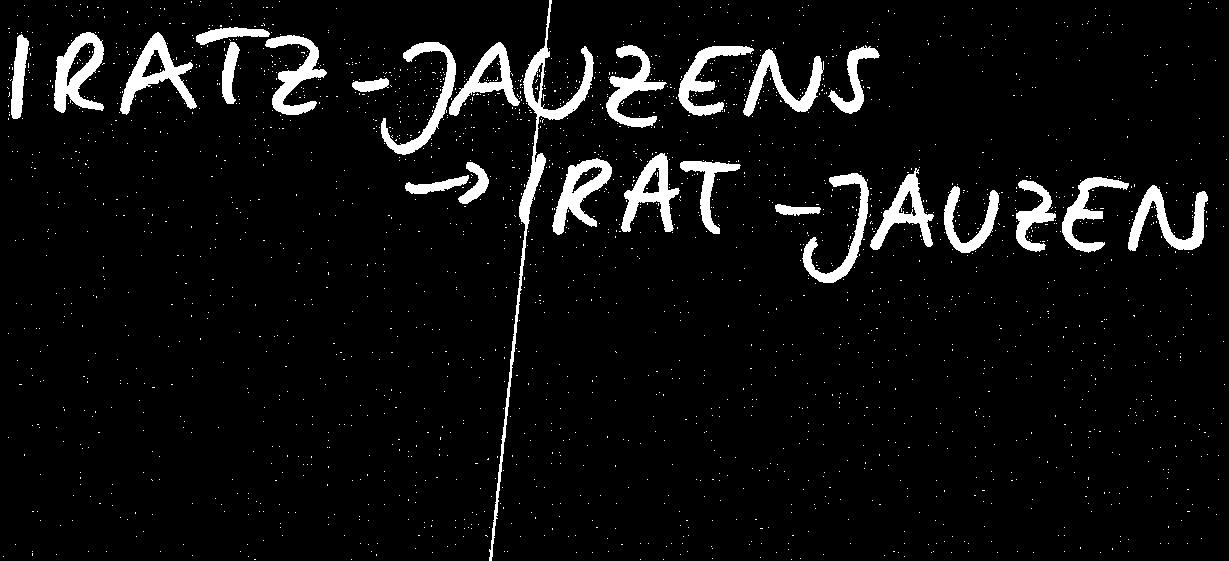 IRATZ-JAUZENS
→ IRAT-JAUZEN